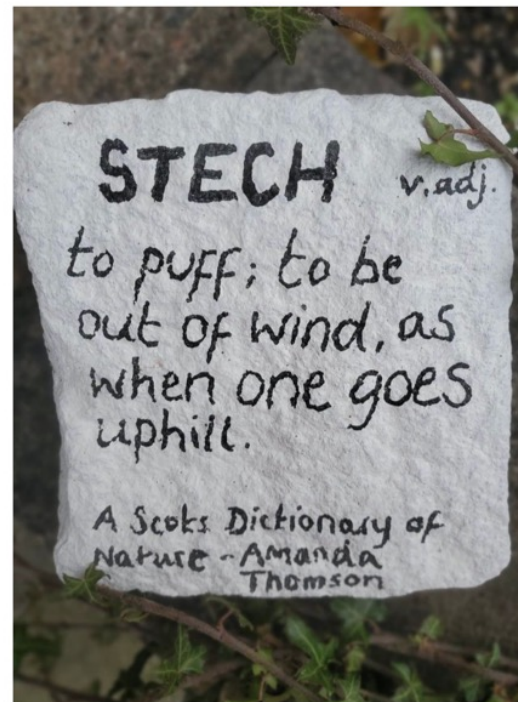 STECH v.adj.
to puff; to be
out of wind, as
when one goes
uphill.
A Scots Dictionary of
Nature - Amanda
Thomson